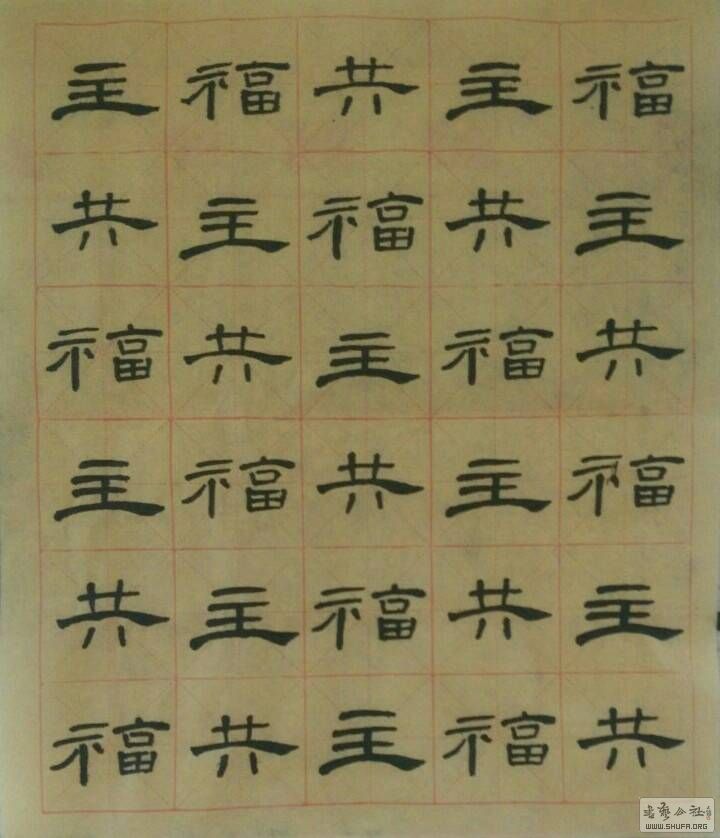 主福共主福
共主福共主
福共主福共
主福共主福
共主福共主
福共主福共
书藝公社
WWW.SHUFA.ORG